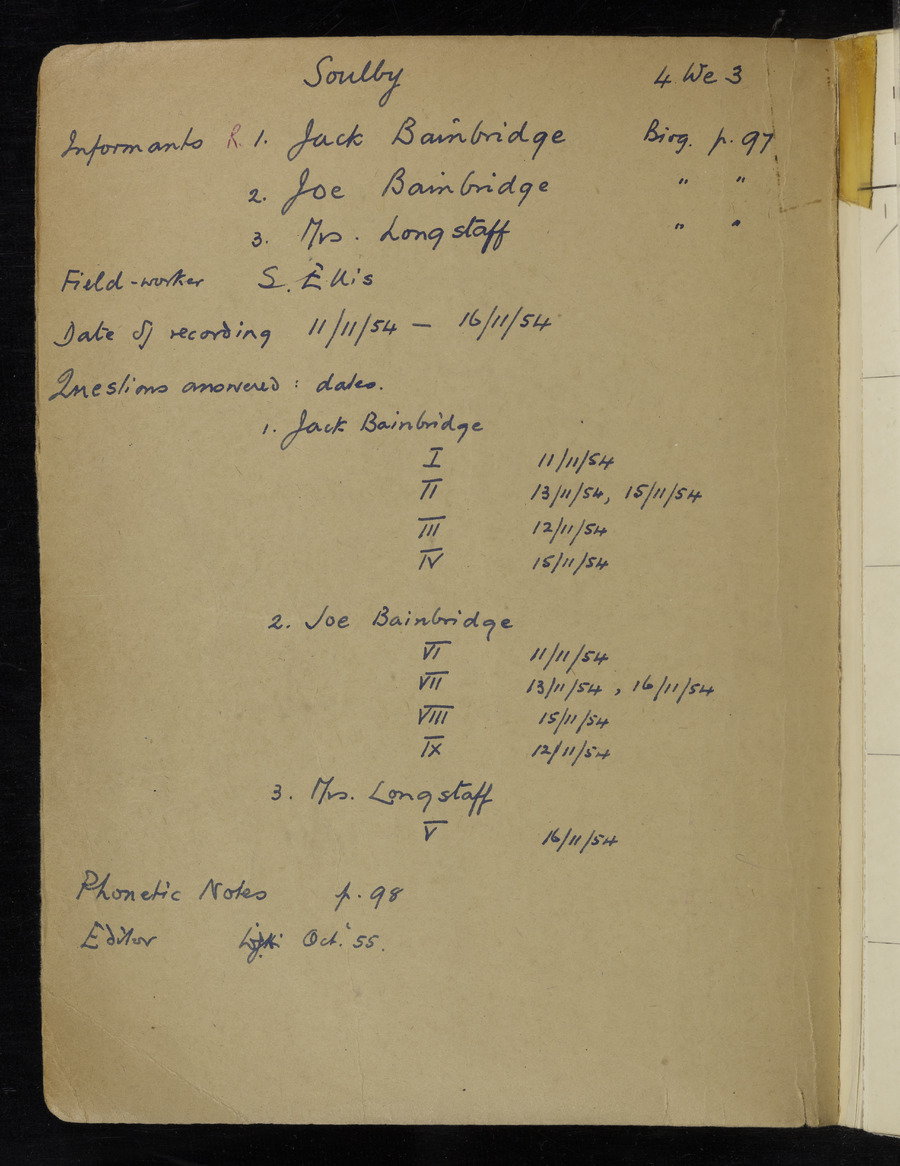 Soulby 4 We 3
Informants R. 1. Jack Bainbridge Biog. p. 97
2. Joe Bainbridge " "
3. Mrs. Longstaff " "
Field-worker S. Ellis
Date of recording 11/11/54 — 16/11/54
Questions answered : dates.
1. Jack Bainbridge
I 11/11/54
II 13/11/54, 15/11/54
III 12/11/54
IV 15/11/54
2. Joe Bainbridge
VI 11/11/54
VII 13/11/54, 16/11/54
VIII 15/11/54
IX 12/11/54
3. Mrs. Longstaff
V 16/11/54
Phonetic Notes p. 98
Editor Oct. '55.